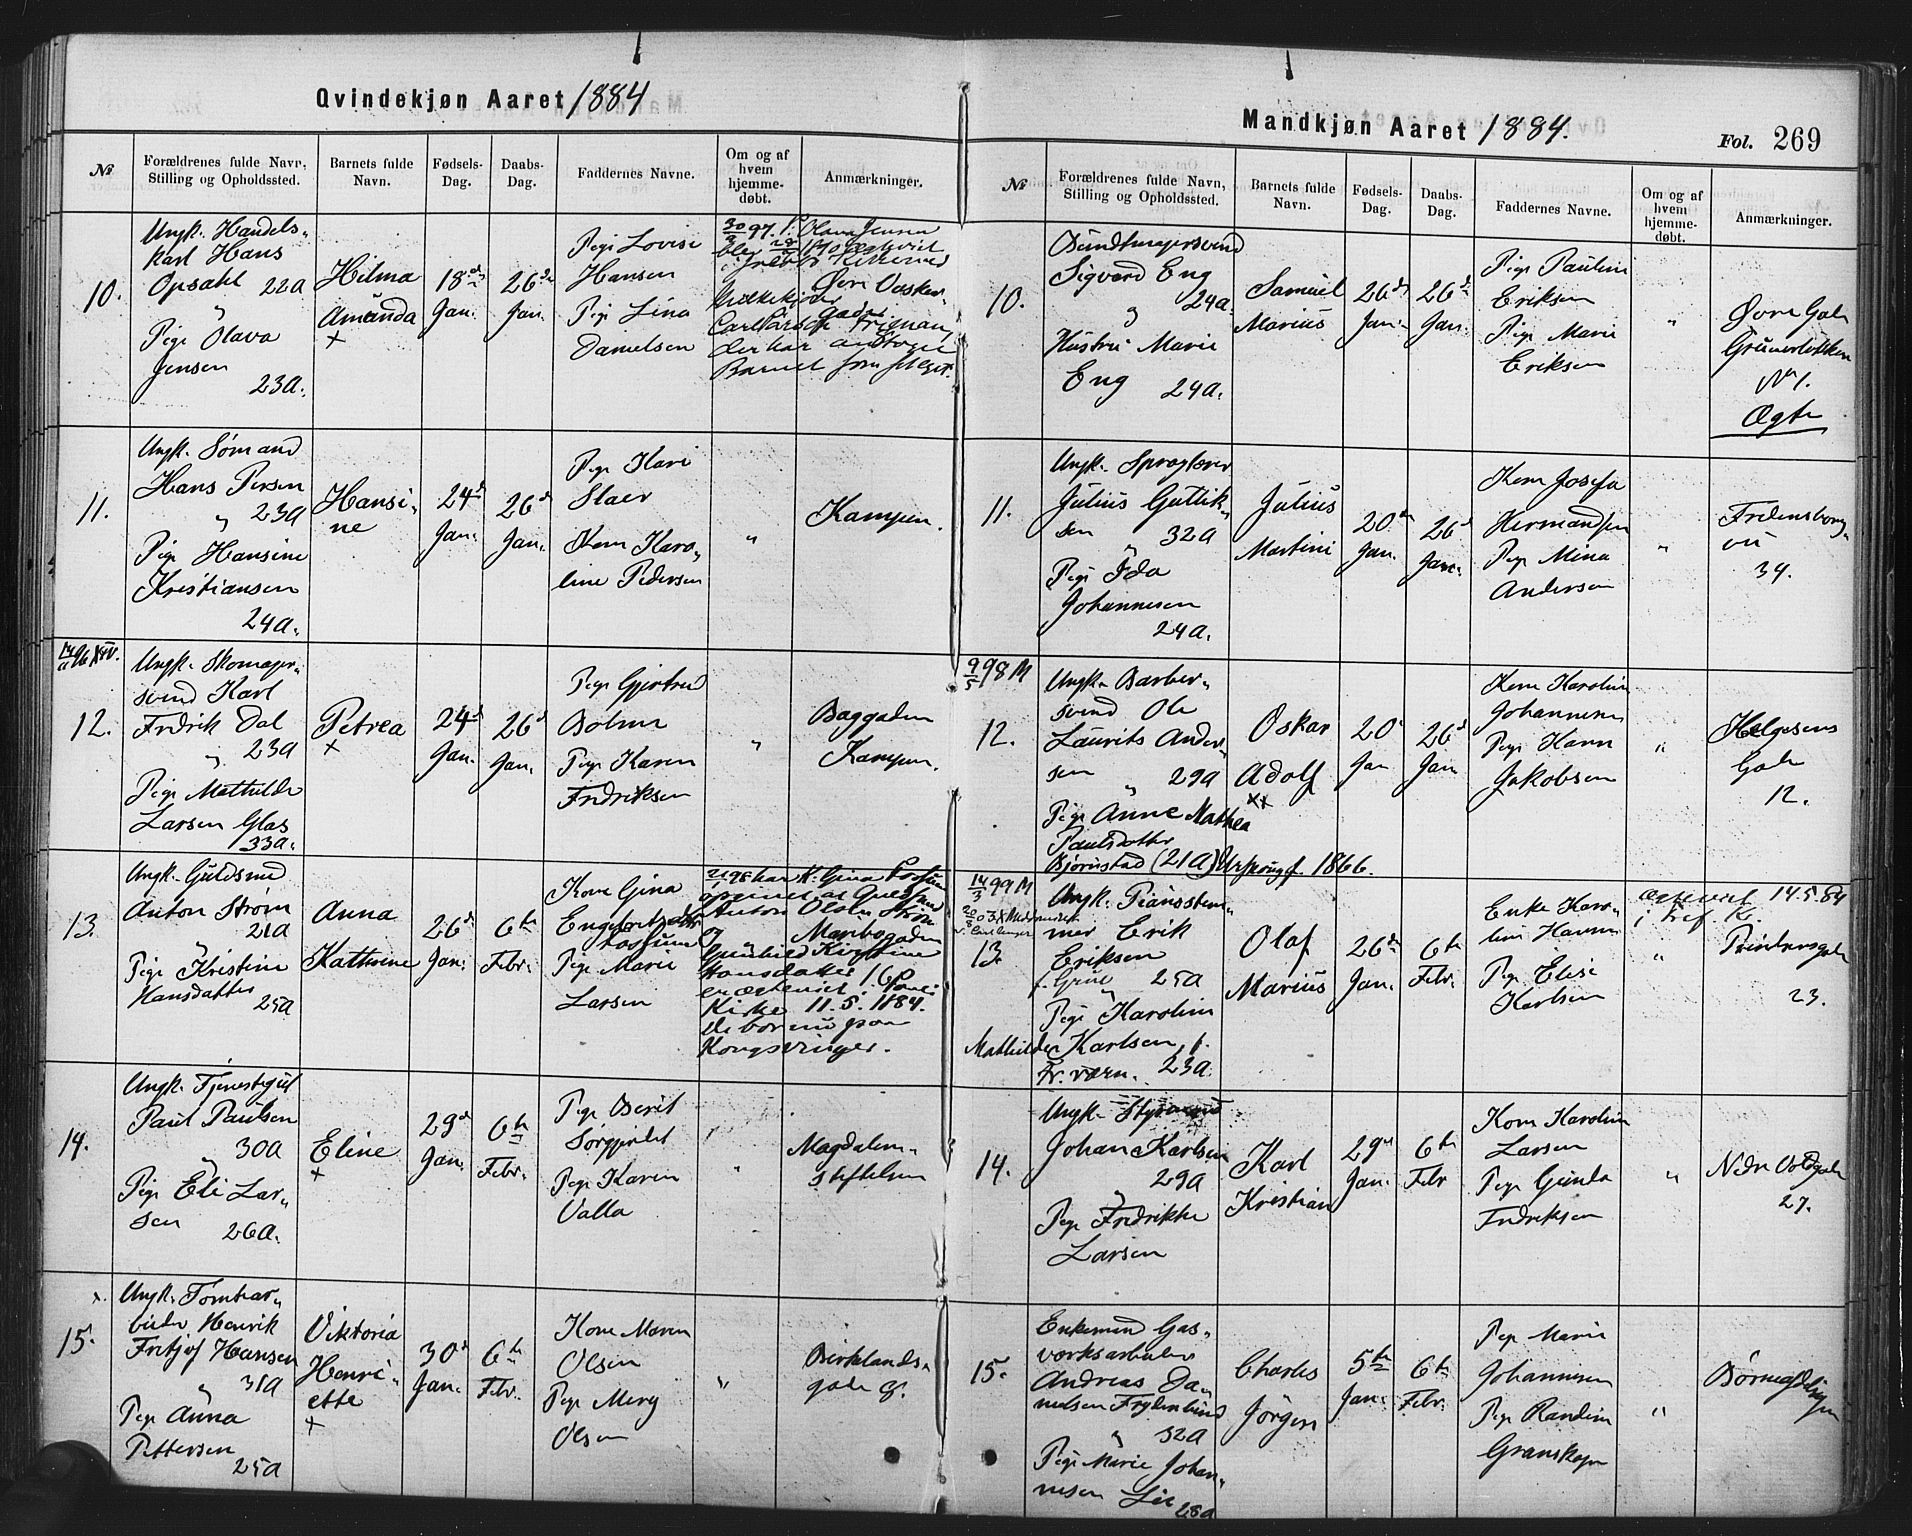 Qvindekjøn Aaret 1884
№
Forældrenes fulde Navn,
Stilling og Opholdssted.
Barnets fulde
Navn.
Fødsels-
Dag.
Daabs-
Dag.
Faddernes Navne.
Om og af
hvem
hjemme-
døbt.
Anmærkninger.
10.
Ungk. Handels-
karl Hans
Opsahl 22a
"
Pige Olava
Jensen
23a.
Hilma
Amanda
+
18d
Jan.
26d
Jan.
Pige Lovise
Hansen
Pige Lina
Danielsen
30/9 97. P. Olava Jensen
blev
Øvre Vasker-
gade
der har antaget
Barnet som sit eget.
11.
Ungk. Sømand
Hans Persen
" 23a
Pige Hansine
Kristiansen
24a.
Hansi-
ne
24d
Jan.
26d
Jan.
Pige Kari
Staer
Kone Karo-
line Pedersen
"
Kampen.
12.
Ungk. Skomager-
svend Karl
Fredrik Dal
" 23a
Pige Mathilde
Larsen Glas
33a.
Petrea
+
24d
Jan.
26d
Jan.
Pige Gjertrud
Bolme
Pige Karen
Fredriksen
"
Baggaden
Kampen.
13.
Ungk. Guldsmed
Anton Strøm
" 21a
Pige Kristine
Hansdatter
25a
Anna
Kathrine
26d
Jan.
6te
Febr.
Kone Gina
Pige Marie
Larsen
Anton Olsen Strøm
og Maribogaden
Gunhild Kirstine
Hansdatter
er ægteviet
Kirke 11.5.1884.
De bor nu paa
Kongsvinger.
14.
Ungk. Tjenestegut
Paul Paulsen
" 30a
Pige Eli Lar-
sen
26a.
Eline
+
29d
Jan.
6te
Febr.
Pige Berit
Pige Karen
Valla
"
Magdalene-
stiftelsen
15.
Ungk. Tømrar-
beider Henrik
Fritjof Hansen
" 31a
Pige Anna
Pettersen
25a
Viktoria
Henri-
ette
+
30d
Jan.
6te
Febr.
Kone Maren
Olsen
Pige Mery
Olsen
"
Birklands-
gade 8.
Mandkjøn Aaret 1884.
Fol. 269
№
Forældrenes fulde Navn,
Stilling og Opholdssted.
Barnets fulde
Navn.
Fødsels-
Dag.
Daabs-
Dag.
Faddernes Navne.
Om og af
hvem
hjemme-
døbt.
Anmærkninger.
10.
Bundtmagersvend
Sigvard Eng
24a.
og
Hustru Marie
Eng 24a.
Samuel
Marius
26d
Jan.
26d
Jan.
Pige Pauline
Eriksen
Pige Marie
Eriksen
"
Øvre Gade
Grünerløkken
No 1.
Ægte
11.
Ungk. Sproglærer
Julius Gullik-
sen 32a
"
Pige Ida
Johannesen
24a.
Julius
Martini
20de
Jan.
26d
Jan.
Kone Josefa
Hermandsen
Pige Mina
Andersen
"
Fredensborg-
vei
34.
9/5 98 M
12.
Ungk. Barber-
svend Ole
Laurits Ander-
sen 29a
"
Pige Anne Mathea
Paulsdatter
Bjørnstad (21a)
f. 1866.
Oskar
Adolf
xx
20
Jan
26d
Jan
Kone Karoline
Johannesen
Pige Hanna
Jakobsen
"
Helgesens
Gade
12.
14/3 99 M
13.
Ungk. Pianostem-
mer Erik
Eriksen
f. Grue 25a
"
Pige Karoline
Mathilde Karlsen, f.
Fr. værn. 23a.
Olaf
Marius
26d
Jan.
6te
Febr.
Enke Karo-
line Havn
Pige Elise
Karlsen
ægteviet 14.5.84
i Tref. K.
"
23.
14.
Ungk. Styrmand
Johan Karlsen
29a
"
Pige Fredrikke
Larsen
Karl
Kristian
29d
Jan.
6te
Febr
Kone Karoline
Larsen
Pige Gunda
Fredriksen
"
Nedre Voldgade
27.
15.
Enkemand Gas-
værksarbeider
Andreas Da-
nielsen Frydenlund
" 52a
Pige Marie Johan-
nesen Lie
28a
Charles
Jørgen
5te
Jan.
6te
Febr.
Pige Marie
Johannesen
Pige Randine
"